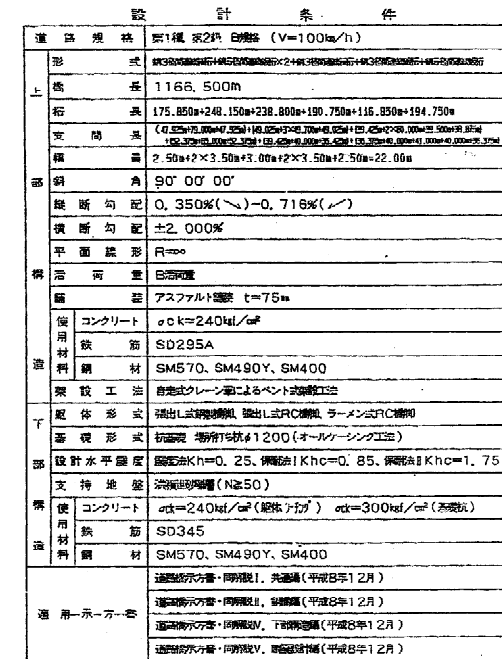 設計条件
道路規格 第1種 第2級 B規格 (V=100km/h)
上部構造
形式
橋長 1166.500m
桁長 175.850m+248.150m+238.800m+190.750m+116.850m+194.750m
支間長
幅員 2.50m+2×3.50m+3.00m+2×3.50m+2.50m=22.00m
斜角 90° 00′ 00″
縦断勾配 0.350%(↘)-0.716%(↗)
横断勾配 ±2.000%
平面線形 R=∞
活荷重 B活荷重
舗装 アスファルト舗装 t=75m
使用材料
コンクリート σck=240kgf/cm²
鉄筋 SD295A
鋼材 SM570、SM490Y、SM400
架設工法 自走式クレーン車によるベント式架設工法
下部構造
躯体形式 張出し式鋼製橋脚、張出し式RC橋脚、ラーメン式RC橋脚
基礎形式 杭基礎 場所打ち杭φ1200(オールケーシング工法)
設計水平震度 震度法Kh=0.25、保耐法ⅠKhc=0.85、保耐法ⅡKhc=1.75
支持地盤 (N≧50)
使用材料
コンクリート σck=240kgf/cm²(躯体・フーチング) σck=300kgf/cm²(基礎杭)
鉄筋 SD345
鋼材 SM570、SM490Y、SM400
適用示方書
道路橋示方書・同解説Ⅰ. 共通編(平成8年12月)
道路橋示方書・同解説Ⅱ. 鋼橋編(平成8年12月)
道路橋示方書・同解説Ⅳ. 下部構造編(平成8年12月)
道路橋示方書・同解説Ⅴ. 耐震設計編(平成8年12月)